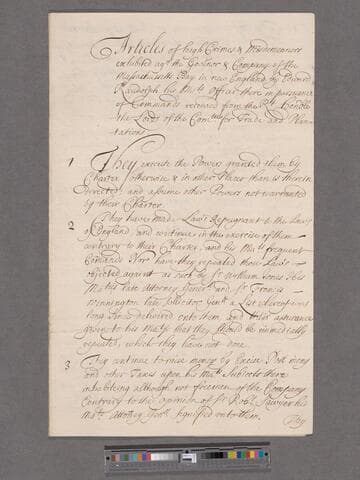 Articles of high Crimes & Misdemeanors
exhibited agt the Govenor & Company of the
Massachusetts Bay in new England by Edward
Randolph his Mats Officer there in pursuance
of Commands received from the Rt Honble
the Lords of the Comtee for Trade and Plan
tations
1 They execute the Powers granted them by
Charter otherwise & in other Places than is therein
directed, and assume other Powers not warranted
by their Charter
2 They have made Laws Repugnant to the Laws
of England and continue in the exercise of them
contrary to their Charter and his Mats frequent
Comands Nor have they repealed those Laws
objected against as such by Sr William Jones his
Mats late Attorney Generll and Sr Francis
Winnington late Sollicitor Genll a List
long since delivered unto them and their assurance
given to his Matie that they should be immediately
repealed, which they have not done
3 They continue to raise money by Excise Poll mony
and other Taxes upon his Mats Subjects there
inhabiting although not freemen of the Company
Contrary to the Opinion of Sr Robt Sawyer his
Mats Attorney Genll signified unto them.
They